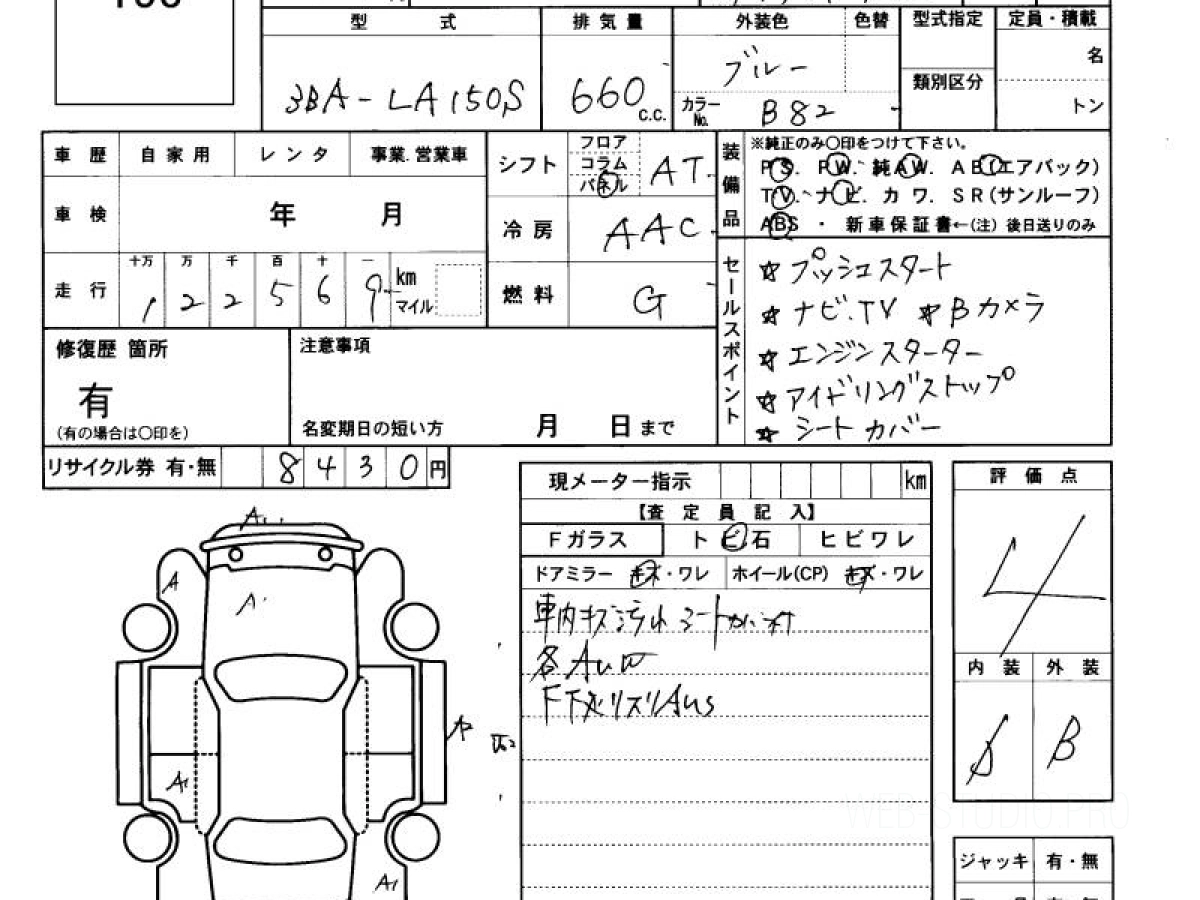 型 式 排気量 外装色 色替 型式指定 定員・積載
3BA-LA150S 660 c.c. ブルー 名
カラーNo. B82 類別区分 トン
車歴 自家用 レンタ 事業.営業車
シフト フロア コラム パネル AT
装備品 ※純正のみ〇印をつけて下さい。
PS. PW. 純AW. AB(エアバック)
TV. ナビ. カワ. SR(サンルーフ)
ABS ・ 新車保証書←(注) 後日送りのみ
車検 年 月
冷房 AAC
走行 十万 万 千 百 十 一
1 2 2 5 6 9 km マイル
燃料 G
セールスポイント
☆プッシュスタート
☆ナビ.TV ☆Bカメラ
☆エンジンスターター
☆アイドリングストップ
☆シートカバー
修復歴 箇所
有
(有の場合は〇印を)
注意事項
名変期日の短い方 月 日まで
リサイクル券 有・無 8430円
現メーター指示 km
【査定員記入】
Fガラス トビ石 ヒビワレ
ドアミラー キズ・ワレ ホイール(CP) キズ・ワレ
車内キズ汚れ シートカバー付
各AuW
評価点
4
内装 外装
B
ジャッキ 有・無
A
A
A1
A1
WEB-STUDIO.PRO